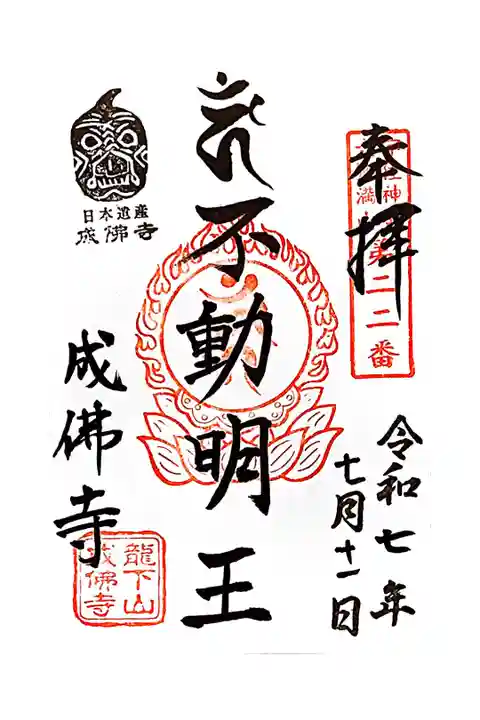 奉拝
第二二番
令和七年
七月十一日
不動明王
日本遺産
成佛寺
成佛寺
龍下山
成佛寺